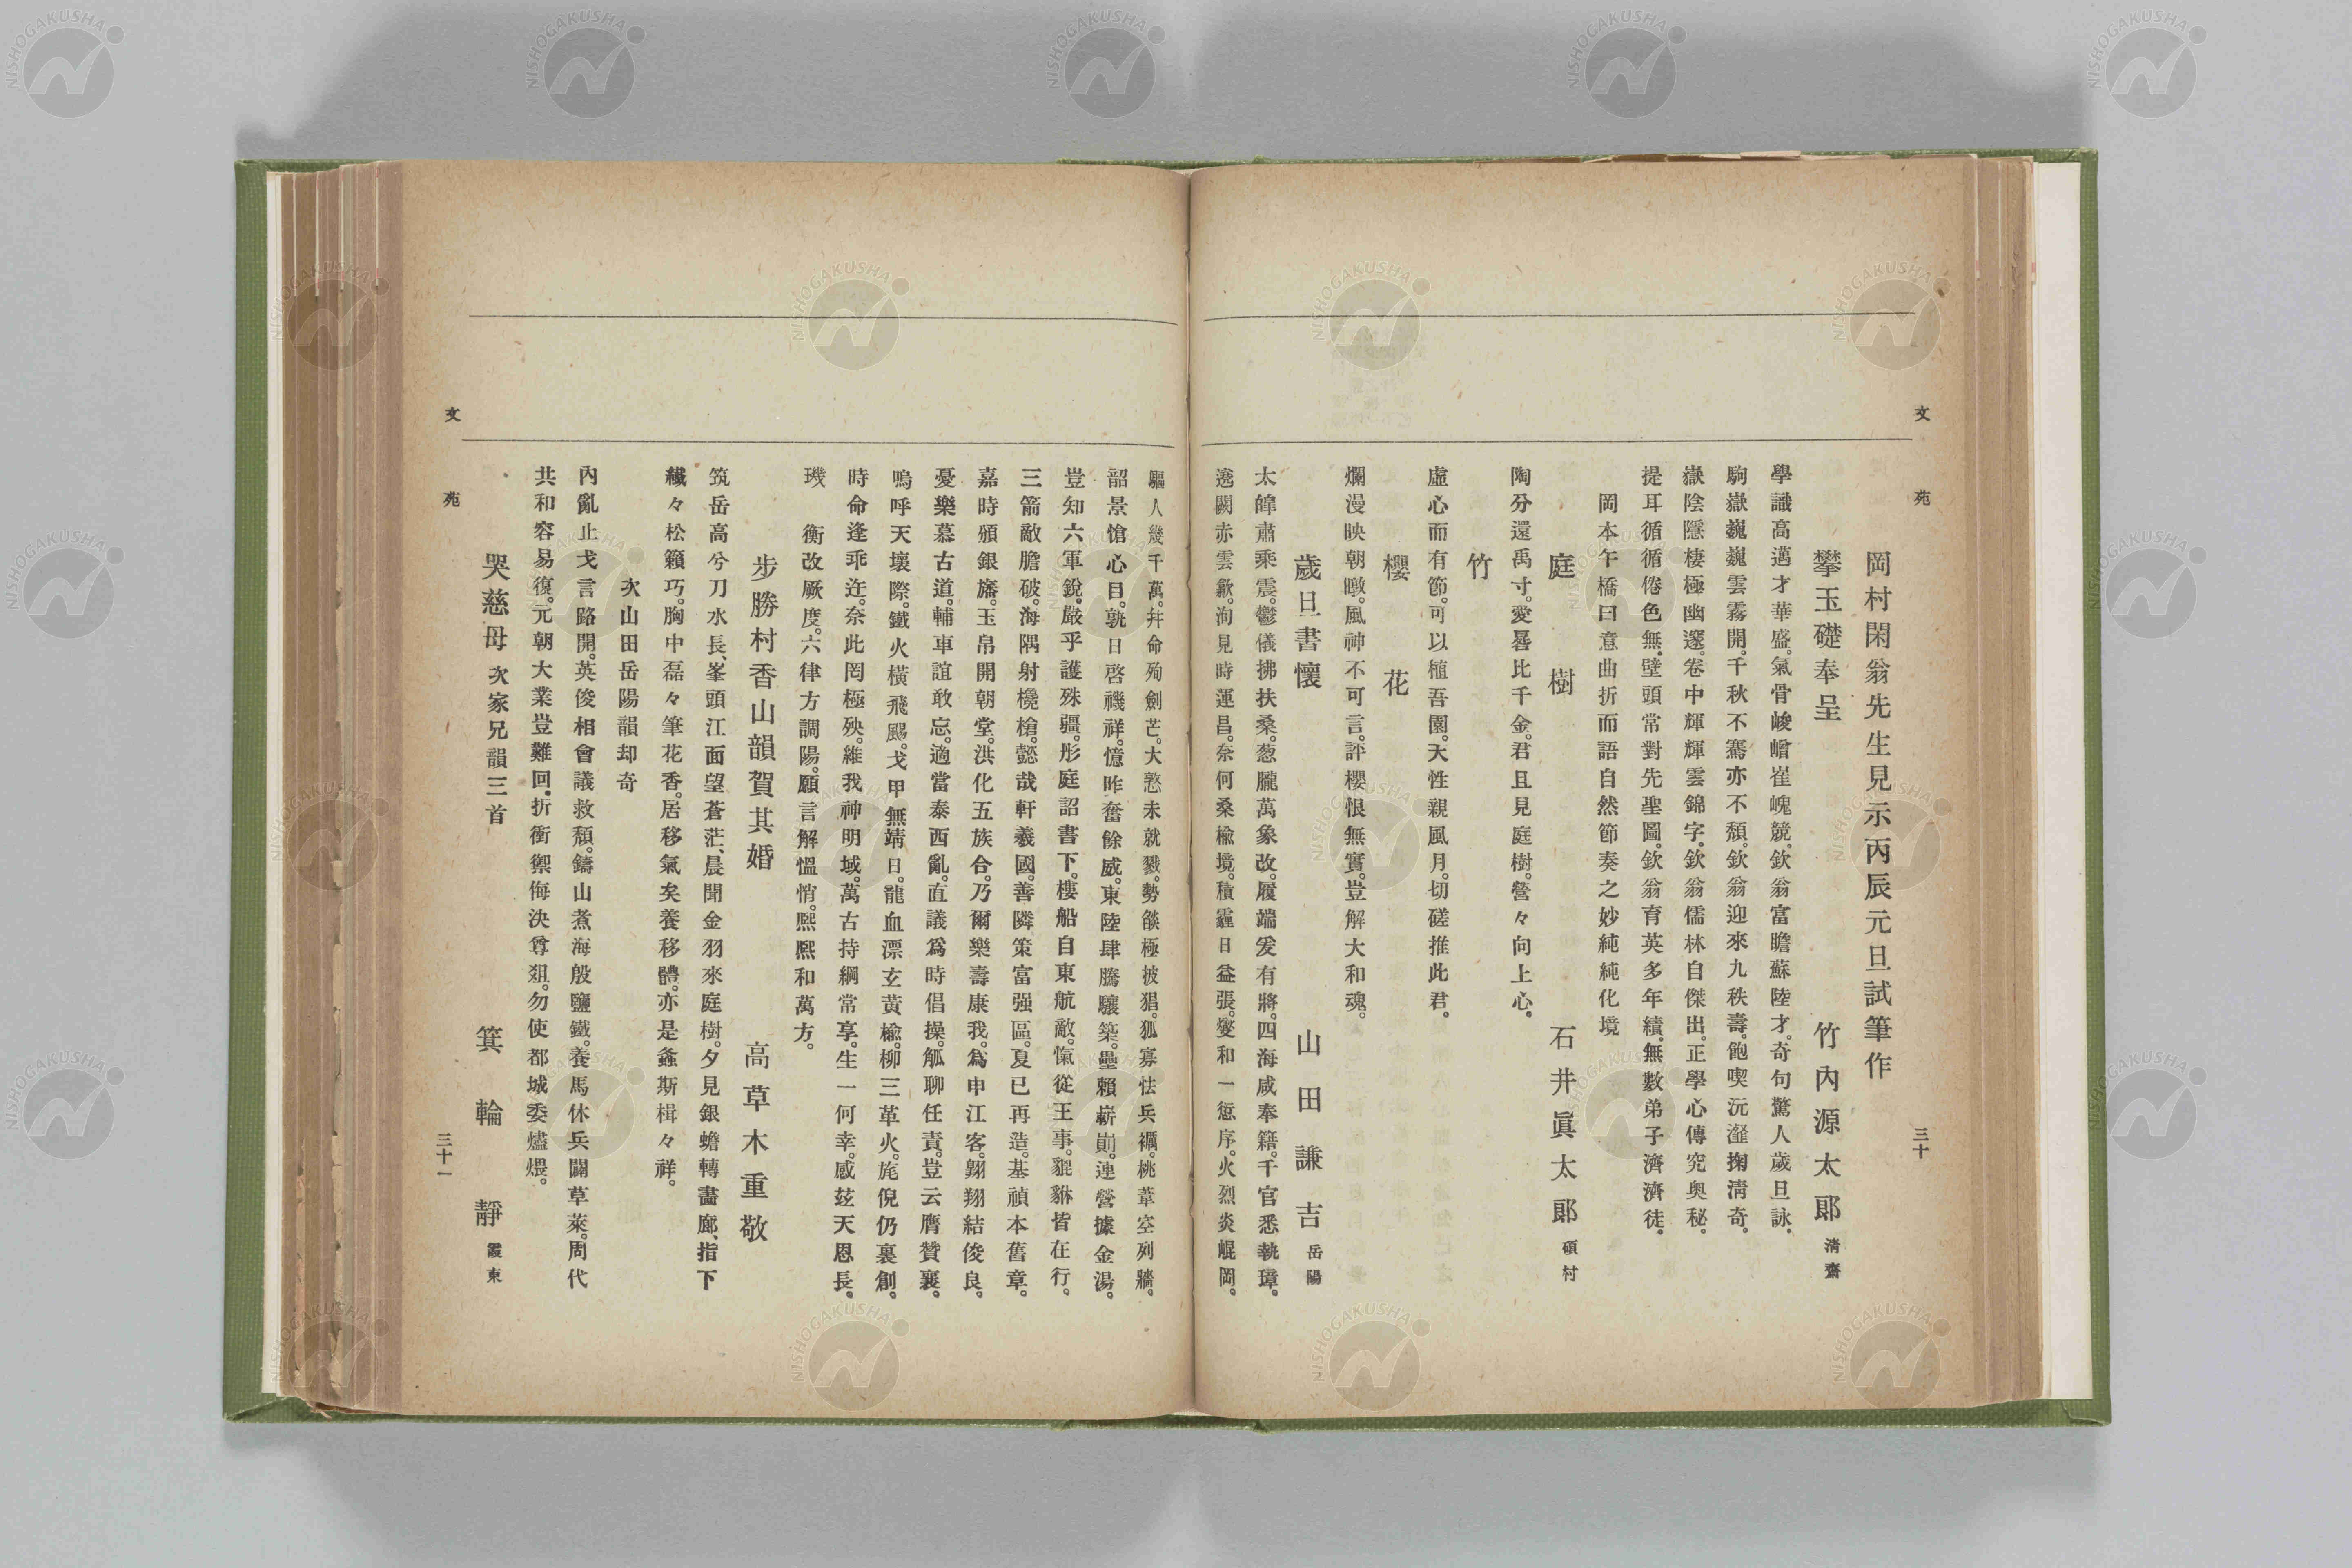 文苑
三十
岡村閑翁先生見示丙辰元旦試筆作
攀玉礎奉呈
竹內源太郞 淸齋
學識高邁才華盛。氣骨峻嶒崔嵬競。欽翁富瞻蘇陸才。奇句驚人歲旦詠。
駒嶽巍巍雲霧開。千秋不騫亦不頹。欽翁迎來九秩壽。飽喫沆瀣掬淸奇。
嶽陰隱棲極幽邃。卷中輝輝雲錦字。欽翁儒林自傑出。正學心傳究奧秘。
提耳循循倦色無。壁頭常對先聖圖。欽翁育英多年績。無數弟子濟濟徒。
岡本午橋曰意曲折而語自然節奏之妙純純化境
庭樹
石井眞太郞 碩村
陶分還禹寸。愛晷比千金。君且見庭樹。營々向上心。
竹
虛心而有節。可以植吾園。天性親風月。切磋推此君。
櫻花
爛漫映朝暾。風神不可言。評櫻恨無實。豈解大和魂。
歲旦書懷
山田謙吉 岳陽
太皞肅乘震。鬱儀拂扶桑。葱朧萬象改。履端爰有將。四海咸奉籍。千官悉執璋。
遶闕赤雲歛。洵見時運昌。奈何桑楡境。積霾日益張。燮和一愆序。火烈炎崐岡。
驅人幾千萬。幷命殉劍芒。大憝未就戮。勢燄極披猖。狐寡怯兵禍。桃葦空列牆。
韶景愴心目。孰日啓禨祥。憶昨奮餘威。東陸肆騰驤。築壘賴嶄崱。連營據金湯。
豈知六軍銳。嚴乎護殊疆。彤庭詔書下。樓船自東航。敵愾從王事。貔貅皆在行。
三箭敵膽破。海隅射欃槍。懿哉軒羲國。善隣策富强。區夏已再造。基禎本舊章。
嘉時頒銀旛。玉帛開朝堂。洪化五族合。乃爾樂壽康。我爲申江客。翱翔結俊良。
憂樂慕古道。輔車誼敢忘。適當泰西亂。直議爲時倡。操觚聊任責。豈云膺贊襄。
嗚呼天壤際。鐵火橫飛颺。戈甲無靖日。龍血漂玄黃。楡柳三革火。旄倪仍裹創。
時命逢乖迕。奈此罔極殃。維我神明域。萬古持綱常。享生一何幸。感玆天恩長。
璣衡改厥度。六律方調陽。願言解慍悄。熙熙和萬方。
步勝村香山韻賀其婚
高草木重敬
筑岳高兮刀水長、峯頭江面望蒼茫、晨聞金羽來庭樹。夕見銀蟾轉畵廊、指下
纎々松籟巧。胸中磊々筆花香。居移氣矣養移體。亦是螽斯楫々祥。
次山田岳陽韻却奇
內亂止戈言路開。英俊相會議救頹。鑄山煮海殷鹽鐵。養馬休兵闢草萊。周代
共和容易復。元朝大業豈難回。折衝禦侮決尊俎。勿使都城委燼煨。
哭慈母 次家兄韻三首
箕輪靜 霞東
文苑
三十一